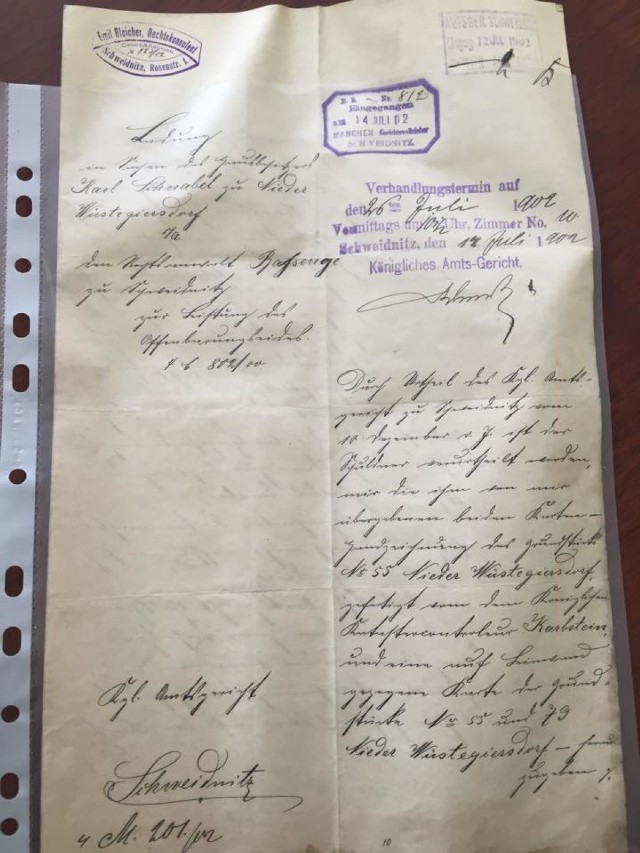 Emil Bleicher, Rechtskonsulent
Schweidnitz, Rosenstr. 1.
Eingeg. 12 JUL. 1902
Nr. 812
Eingegangen
am 14 JULI 02
Gerichtsvollzieher
SCHWEIDNITZ.
Verhandlungstermin auf
den 26ten Juli 1902
Vormittags um 10½ Uhr, Zimmer No. 10
Schweidnitz, den 12 Juli 1902
Königliches Amts-Gericht.
Ladung
in Sachen des Hausbesitzers
Karl Schnabel zu Nieder
Wüstegiersdorf
c/a
den Rechtsanwalt Bassenge
zu Schweidnitz
zur Leistung des
Offenbarungseides.
4 C 802/00
Kgl. Amtsgericht
Schweidnitz
4 M. 201/02
Durch Urtheil des Kgl. Amts-
gericht zu Schweidnitz vom
10 Dezember v. J. ist der
Schuldner verurtheilt worden,
mir die ihm von mir
übergebenen beiden Karten-
handzeichnung des Grundstücks
No 55 Nieder Wüstegiersdorf,
gefertigt von dem Königlichen
Katastercontroleur Karbstein,
und eine auf Leinwand
gezogene Karte der Grund-
stücke No 55 und 79
Nieder Wüstegiersdorf – heraus
zugeben
10